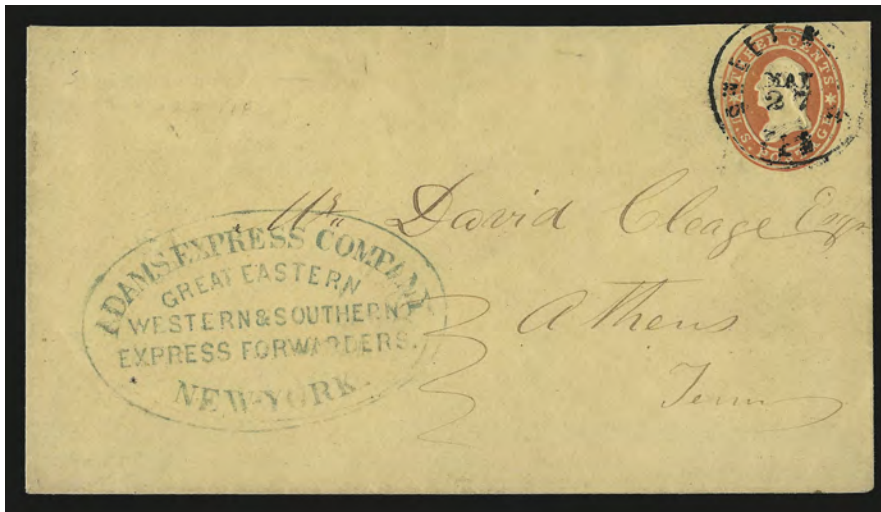 THREE CENTS
U.S. POSTAGE
SWEET
27
Mr. David Cleage Esqr
Athens
Tenn
ADAMS EXPRESS COMPANY
GREAT EASTERN
WESTERN & SOUTHERN
EXPRESS FORWARDERS.
NEW-YORK.